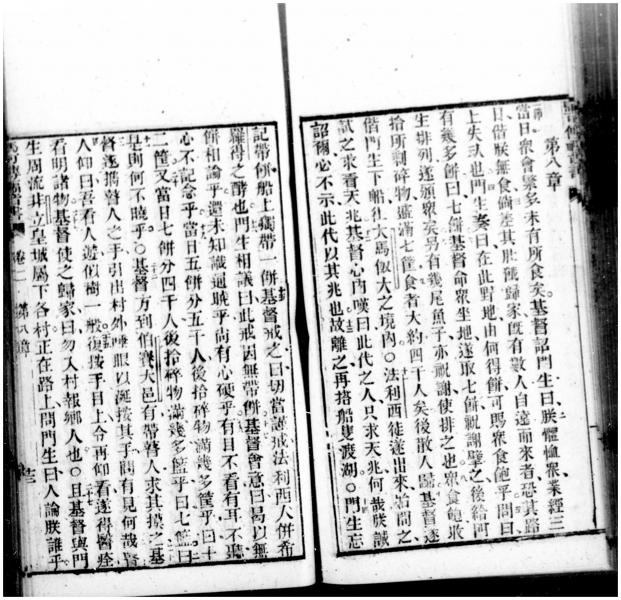 第八章
當日衆會繁多未有所食矣基督詔門生曰朕體恤衆業經三
日偕朕無食倘若其肚餓歸家旣有數人自遠而來者恐其路
上失队也門生奏曰在此野地由何得餅可瑪衆食飽乎問曰
有幾多餅曰七餅基督命衆坐地遂取七餅祝謝擘之後給門
生排列遂頒衆矣另有幾尾魚子亦祝謝使排之也衆食飽收
拾所剩碎物盛滿七筐食者大約四千人矣後散人歸基督遂
偕門生下船往大馬伋大之境內○法利西徒遂出來詰問之
試之求看天兆基督心內嘆曰此代之人只求天兆何哉朕誠
詔爾必不示此代以其兆也故離之再搭船隻渡湖○門生忘
記帶餅船上獨帶一餅基督戒之曰切當謹戒法利西人併希
羅得之酵也門生相議曰此戒因無帶餅基督會意曰曷以無
餅相論乎還未知識逈賊乎尚有心硬乎有目不看有耳不聽
心不記念乎當日五餅分五千人後拾碎物滿幾多筐乎曰十
二筐又當日七餅分四千人後拾碎物滿幾多籃乎曰七籃曰
是則何不曉乎○基督方到伯賽大邑有帶瞽人求其摸之基
督遂携瞽人之手引出村外唾眼以涎按其手問有見何哉瞽
人仰曰吾看人遊似樹一般後按手目上令再仰看遂得醫痊
看明諸物基督使之歸家曰勿入村報鄉人也○且基督與門
生周流井立皇城屬下各村正在路上問門生曰人論朕誰乎
卷二
第八章